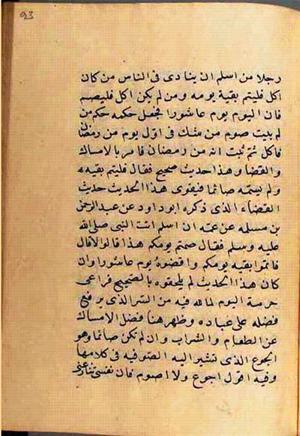 93
رجلا من اسلم ان ينادى فى الناس من كان
اكل فليتم بقية يومه ومن لم يكن اكل فليصم
فان اليوم يوم عاشورا فجعل حكمه حكم من
لم يبيت صوم من شك فى اول يوم من رمضان
فاكل ثم ثبت انه من رمضان فامر بالامساك
والقضا وهذا حديث صحيح فقال فليتم بقية يومه
ولم يسمه صائما فيقوى هذا الحديث حديث
القضاء الذى ذكره ابو داود عن عبد الرحمن
بن مسلمه عن عمه ان اسلم اتت النبى صلى الله
عليه وسلم فقال صمتم يومكم هذا قالوا لا قال
فاتموا بقيه يومكم واقضوه يوم عاشورا وان
كان هذا الحديث لم يلحقوه بالصحيح فراعى
حرمة اليوم لما لله فيه من السر الذى يرفع
فضله على عباده وظهر هنا فضل الامساك
عن الطعام والشراب وان لم يكن صائما وهو
الجوع الذى تشير اليه الصوفيه فى كلامها
وفيه اقول اجوع ولا اصوم فان نفسى تنازعنى